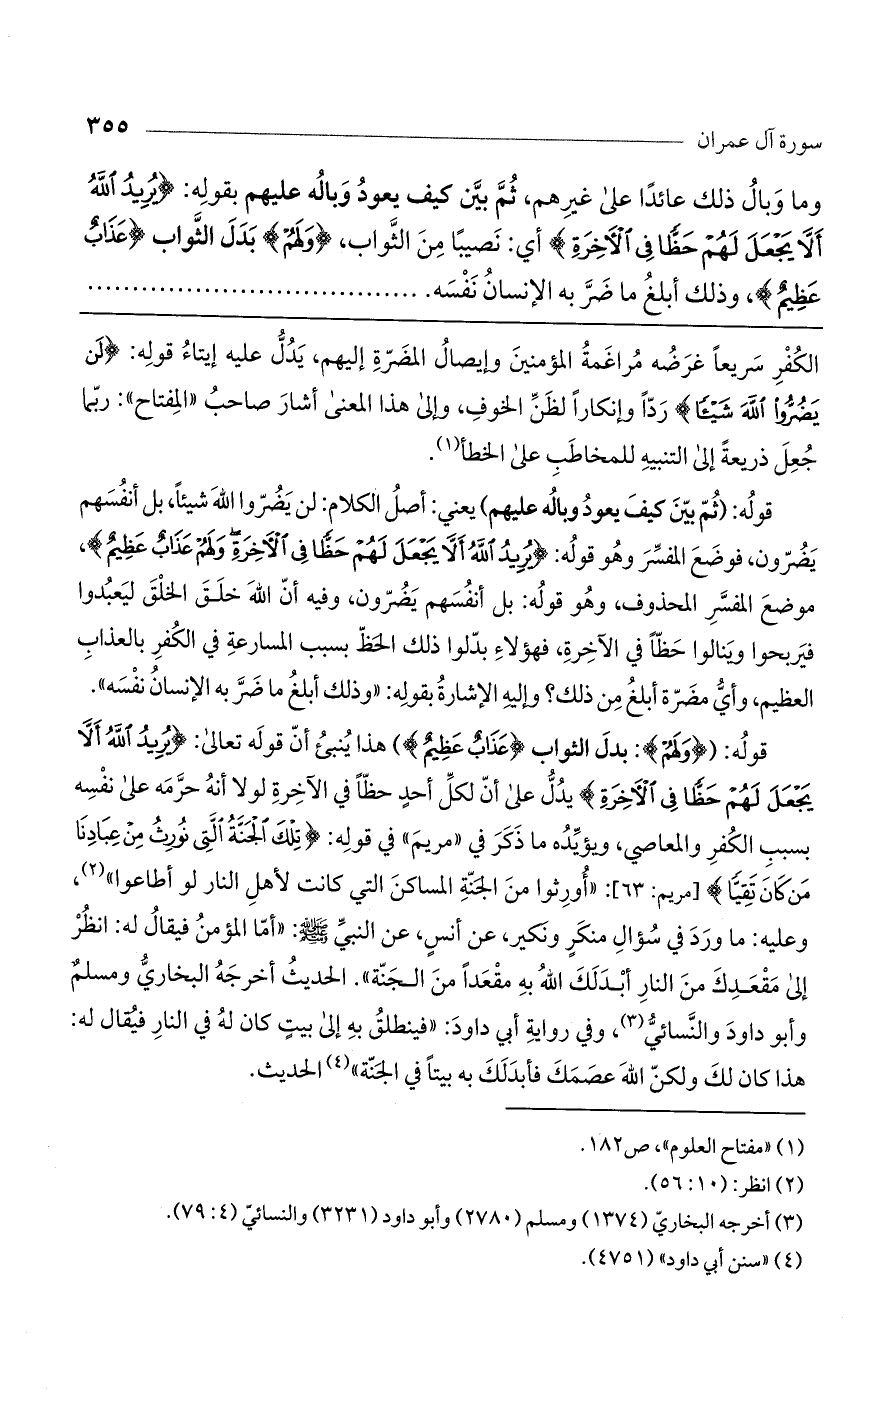 سورة آل عمران ٣٥٥
وما وَبالُ ذلك عائدًا علىٰ غيرِهم، ثُمَّ بيَّن كيف يعودُ وَبالُه عليهم بقولِه: ﴿يُرِيدُ ٱللَّهُ
أَلَّا يَجْعَلَ لَهُمْ حَظًّا فِى ٱلْآخِرَةِ﴾ أي: نَصيبًا مِنَ الثَّواب، ﴿وَلَهُمْ﴾ بَدَلَ الثَّواب ﴿عَذَابٌ
عَظِيمٌ﴾، وذلك أبلغُ ما ضَرَّ به الإنسانُ نَفْسَه. ...................................
الكُفْرِ سَريعاً غرَضُه مُراغَمةُ المؤمنينَ وإيصالُ المضَرّةِ إليهم، يَدُلُّ عليه إيتاءُ قولِه: ﴿لَن
يَضُرُّوا۟ ٱللَّهَ شَيْـًٔا﴾ رَدّاً وإنكاراً لظَنِّ الخوفِ، وإلىٰ هذا المعنىٰ أشارَ صاحبُ «المِفتاح»: ربّما
جُعِلَ ذريعةً إلىٰ التنبيهِ للمخاطَبِ علىٰ الخطأ(١).
قولُه: (ثُمّ بيّنَ كيفَ يعودُ وبالُه عليهم) يعني: أصلُ الكلام: لن يَضُرّوا اللهَ شيئاً، بل أنفُسَهم
يَضُرّون، فوضَعَ المفسِّرَ وهو قولُه: ﴿يُرِيدُ ٱللَّهُ أَلَّا يَجْعَلَ لَهُمْ حَظًّا فِى ٱلْآخِرَةِ ۖ وَلَهُمْ عَذَابٌ عَظِيمٌ﴾،
موضعَ المفسَّرِ المحذوف، وهو قولُه: بل أنفُسَهم يَضُرّون، وفيه أنّ اللهَ خلَـقَ الخلْقَ ليَعبُدوا
فيَربحوا ويَنالوا حَظّاً في الآخِرةِ، فهؤلاءِ بدّلوا ذلك الحَظّ بسبب المسارعةِ في الكُفرِ بالعذابِ
العظيم، وأيُّ مضَرّة أبلغُ مِن ذلك؟ وإليه الإشارةُ بقولِه: «وذلك أبلغُ ما ضَرَّ به الإنسانُ نفْسَه».
قولُه: (﴿وَلَهُمْ﴾: بدلَ الثواب ﴿عَذَابٌ عَظِيمٌ﴾) هذا يُنبئُ أنّ قولَه تعالىٰ: ﴿يُرِيدُ ٱللَّهُ أَلَّا
يَجْعَلَ لَهُمْ حَظًّا فِى ٱلْآخِرَةِ﴾ يدُلُّ علىٰ أنّ لكلِّ أحدٍ حظّاً في الآخرةِ لولا أنهُ حرَّمَه علىٰ نفْسِه
بسببِ الكُفرِ والمعاصي، ويؤيِّدُه ما ذَكَرَ في «مريمَ» في قولِه: ﴿تِلْكَ ٱلْجَنَّةُ ٱلَّتِى نُورِثُ مِنْ عِبَادِنَا
مَن كَانَ تَقِيًّا﴾ [مريم: ٦٣]: «أُورِثوا منَ الجَنّةِ المساكنَ التي كانت لأهلِ النار لو أطاعوا»(٢)،
وعليه: ما ورَدَ في سُؤالِ منكَرٍ ونَكير، عن أنسٍ، عن النبيِّ ﷺ: «أمّا المؤمنُ فيقالُ له: انظُرْ
إلىٰ مَقْعَـدِكَ منَ النارِ أبْـدَلَكَ اللهُ بِه مقْعَداً منَ الـجَنّة». الحديثُ أخرجَهُ البخاريُّ ومسلمٌ
وأبو داودَ والنَّسائيُّ(٣)، وفي روايةِ أبي داودَ: «فينطلقُ بِه إلىٰ بيتٍ كان لهُ في النارِ فيُقال له:
هذا كان لكَ ولكنّ اللهَ عصَمَكَ فأبدَلَكَ به بيتاً في الجَنّة»(٤) الحديث.
(١) «مفتاح العلوم»، ص١٨٢.
(٢) انظر: (١٠: ٥٦).
(٣) أخرجه البخاريّ (١٣٧٤) ومسلم (٢٧٨٠) وأبو داود (٣٢٣١) والنسائيّ (٤: ٧٩).
(٤) «سنن أبي داود» (٤٧٥١).